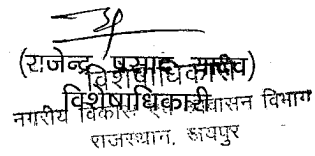 (राजेन्द्र प्रसाद यादव)
विशेषाधिकारी
विशेषाधिकारी
नगरीय विकास एवं आवासन विभाग
राजस्थान, जयपुर